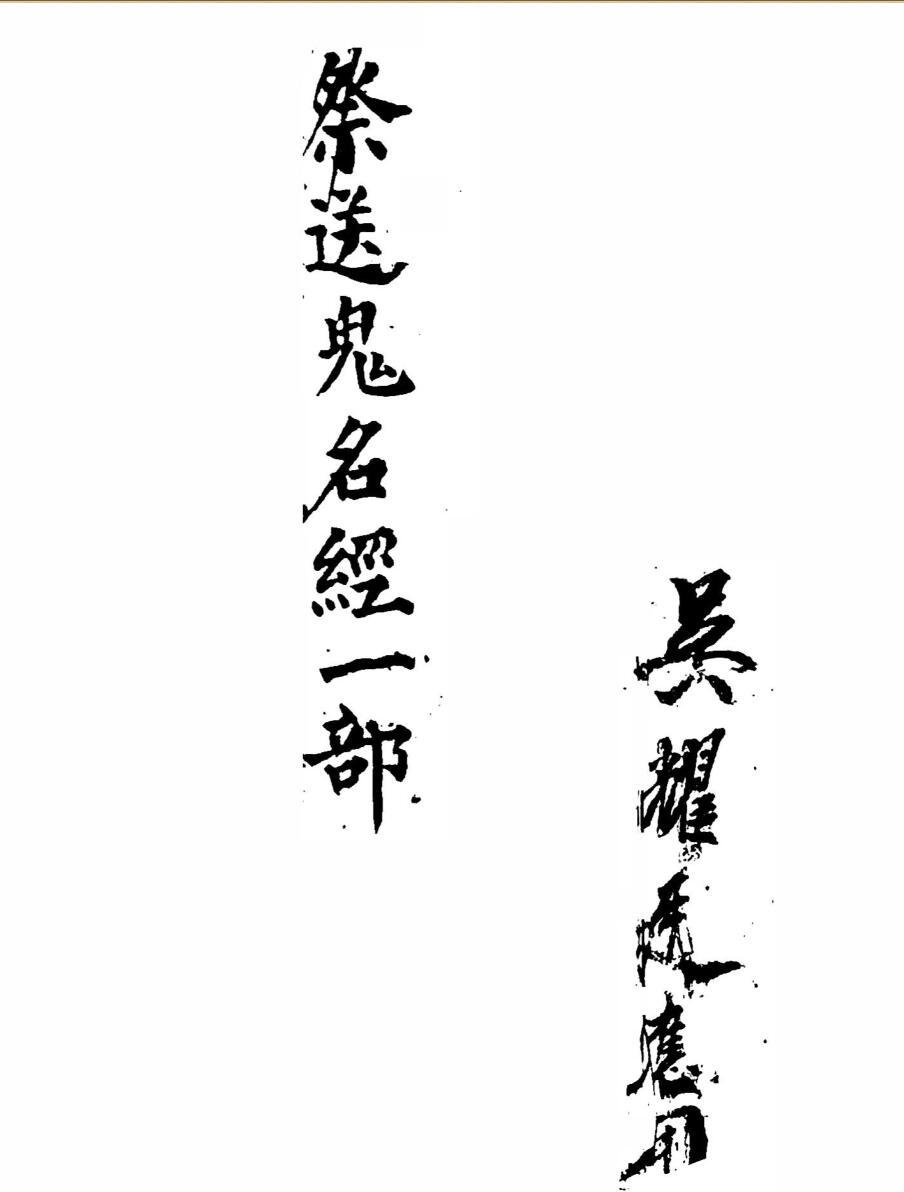 吳耀應用
祭送鬼名經一部